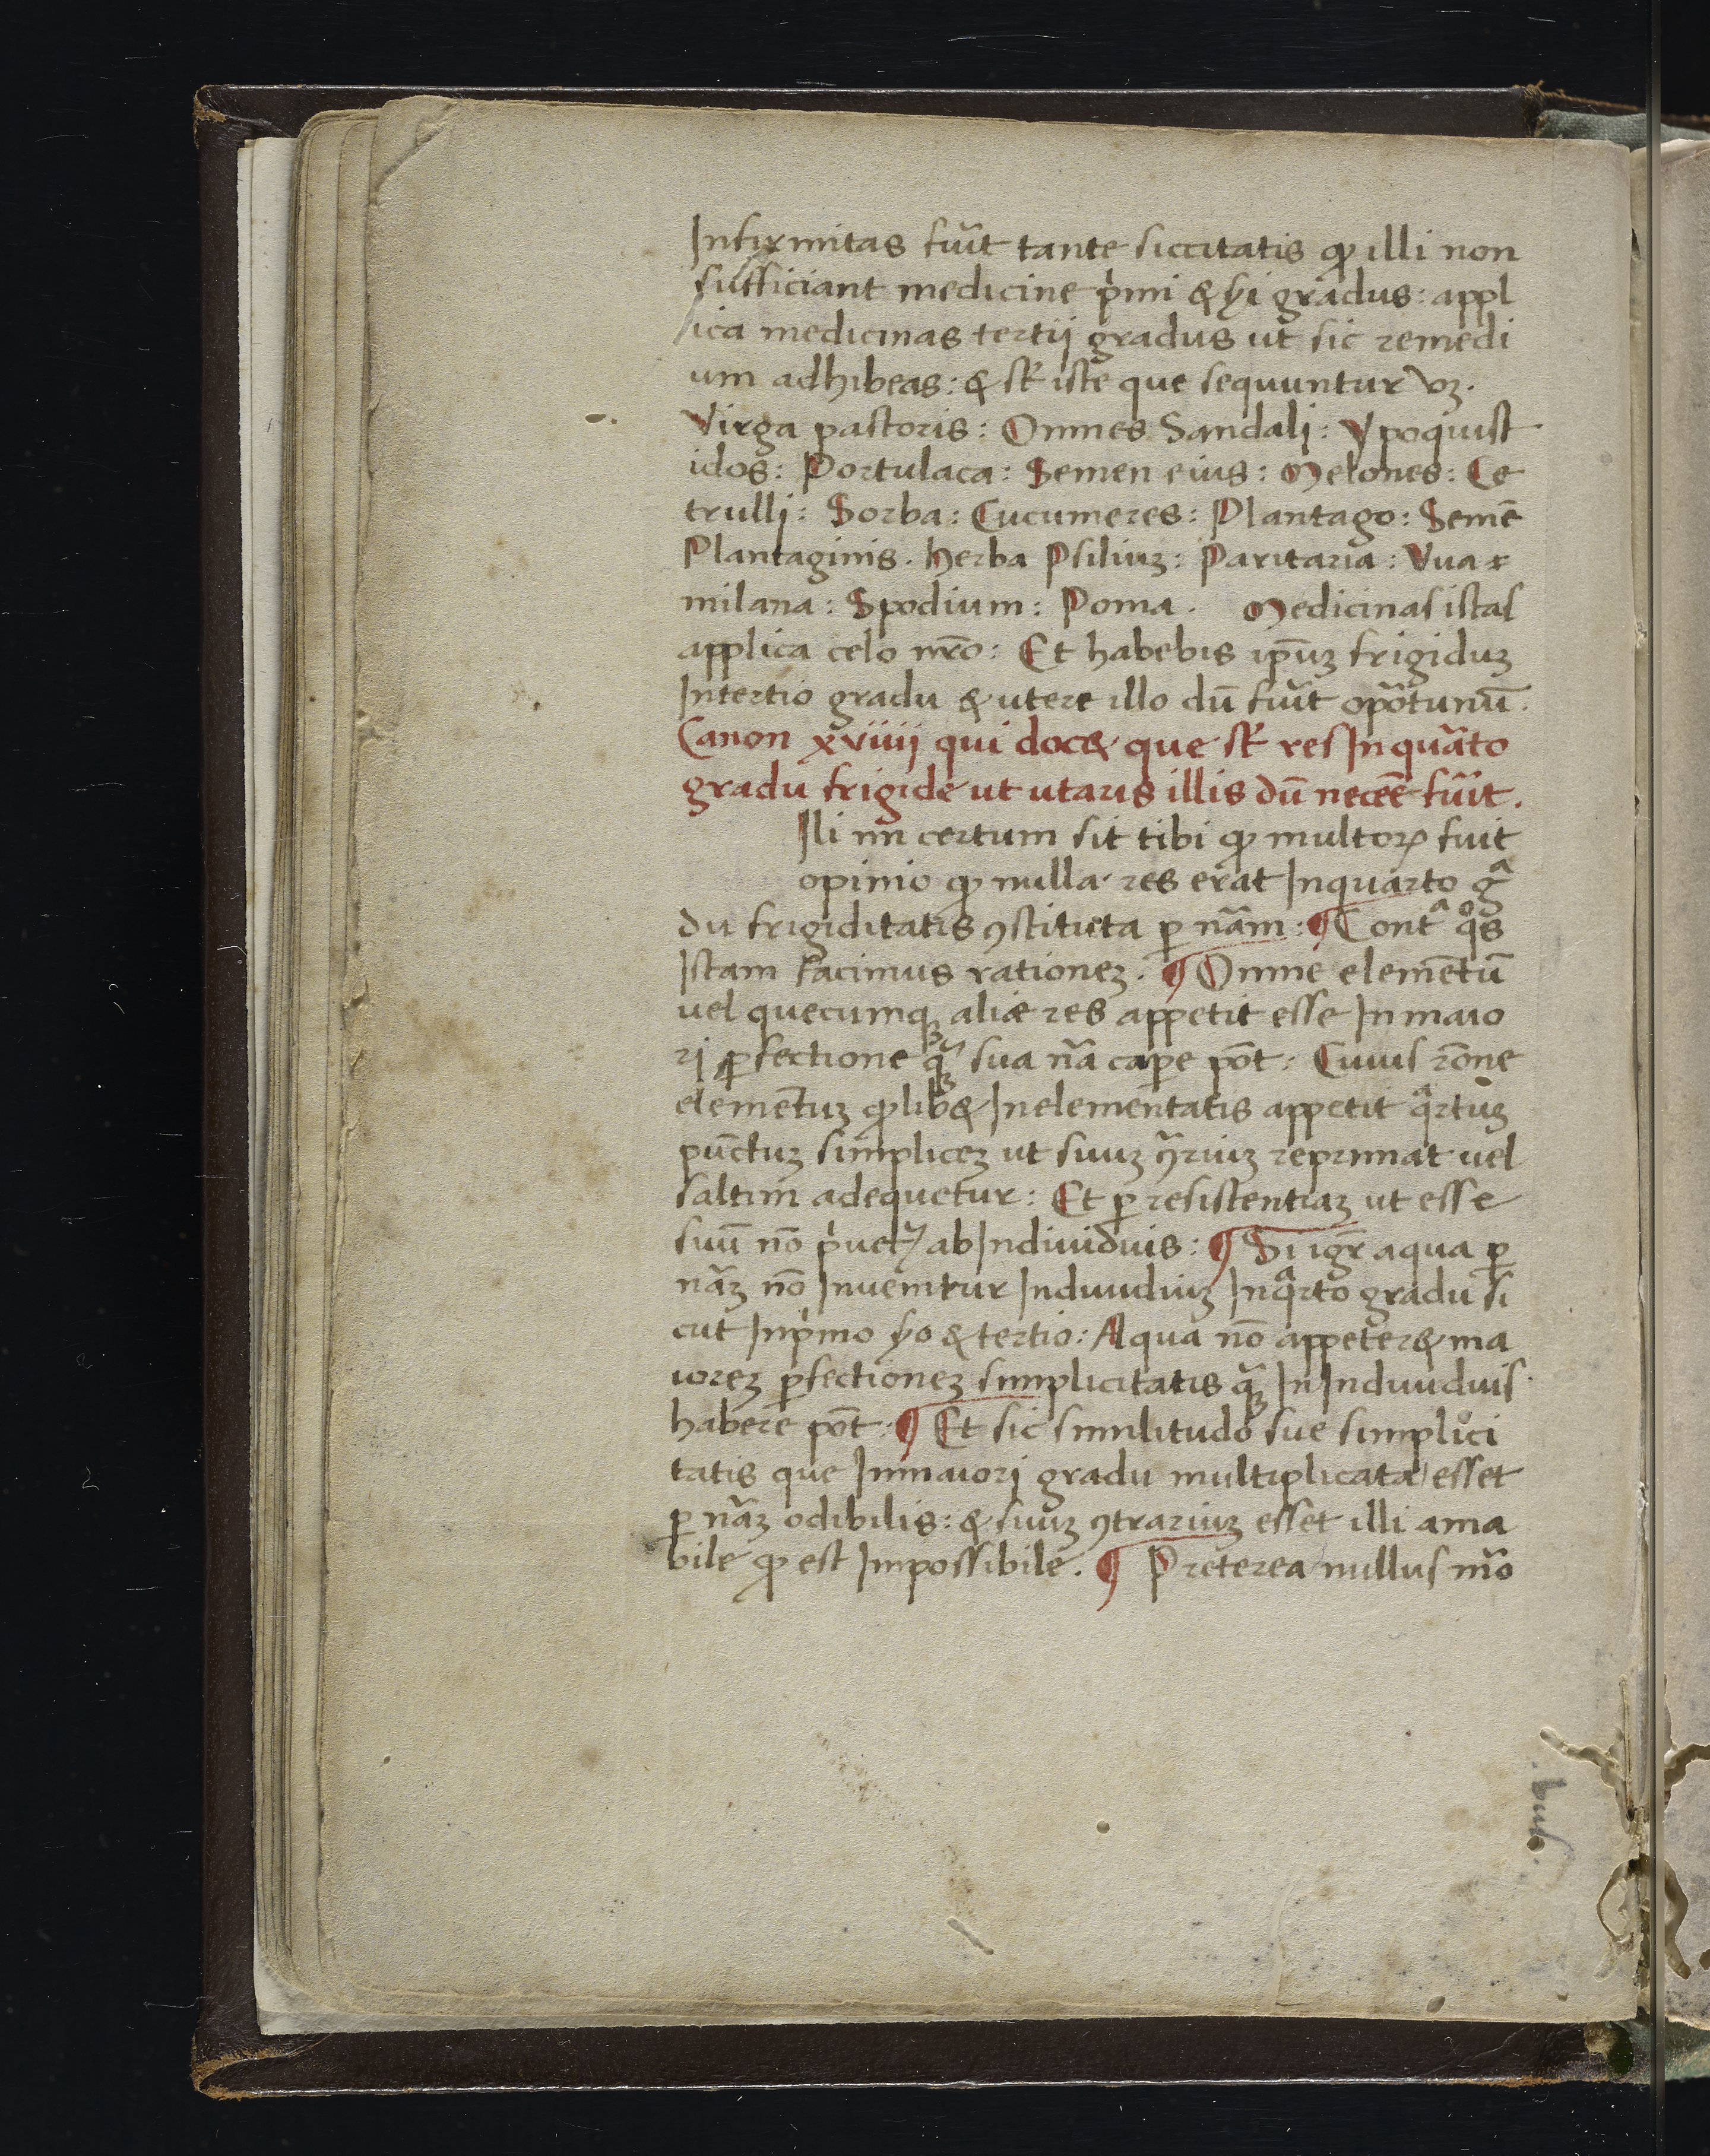 Infirmitas fuĩt tante siccitatis ꝙ illi non
sufficiant medicine p̍mi & s̶i gradus: appl
ica medicinas tertii gradus ut sic remedi
um adhibeas: & st̃ iste que sequuntur vꝫ.
Virga pastoris: Omnes Sandali: Ypoquist
idos: Portulaca: Semen eius: Melones: Ce
trulli: Sorba: Cucumeres: Plantago: Semẽ
Plantaginis. Herba Psiliuꝫ: Paritaria: Vua
milana: Spodium: Poma. Medicinas istas
applica celo nr̃o: Et habebis ip̃uꝫ frigiduꝫ
Intertio gradu & utere illo dũ fuĩt opõtunũ.
Canon xviiii qui doc& que st̃ res Inquãto
gradu frigide ut utaris illis dũ necẽẽ fuĩt.
Ili mi certum sit tibi ꝙ multoꝝ fuit
opinio ꝙ nulla res erat Inquarto gᵃ
du frigiditatis ꝯstituta ꝑ nãm: ¶ Contᵃ qͦs
Istam facimus rationeꝫ. ¶ Omne elemẽtũ
uel quecumqꝫ aliæ res appetit esse Inmaio
ri ꝑfectione qꝫ̃ sua nã caꝑe põt: Cuius rõne
elemẽtuꝫ ꝙlib& Inelementatis appetit qᵃrtuꝫ
pũctuꝫ simpliceꝫ ut suuꝫ ꝯ̃riuꝫ reprimat uel
saltim adequetur: Et ꝑ resistentiaꝫ ut esse
suũ nõ p̍uet̃ ab Indiuiduis: ¶ Si igr̃ aqua ꝑ
nãꝫ nõ Inuenitur Indiuiduuꝫ Inqᵃrto gradu si
cut Inp̍mo s̶o & tertio: Aqua nõ appeter& ma
ioreꝫ ꝑfectioneꝫ simplicitatis qꝫ̃ In Indiuiduis
habere põt. ¶ Et sic similitudo sue simplici
tatis que Inmaiori gradu multiplicata esset
ꝑ nãꝫ odibilis: & suuꝫ ꝯtrariuꝫ esset illi ama
bile ꝙ est Impossibile. ¶ Preterea nullus mõ